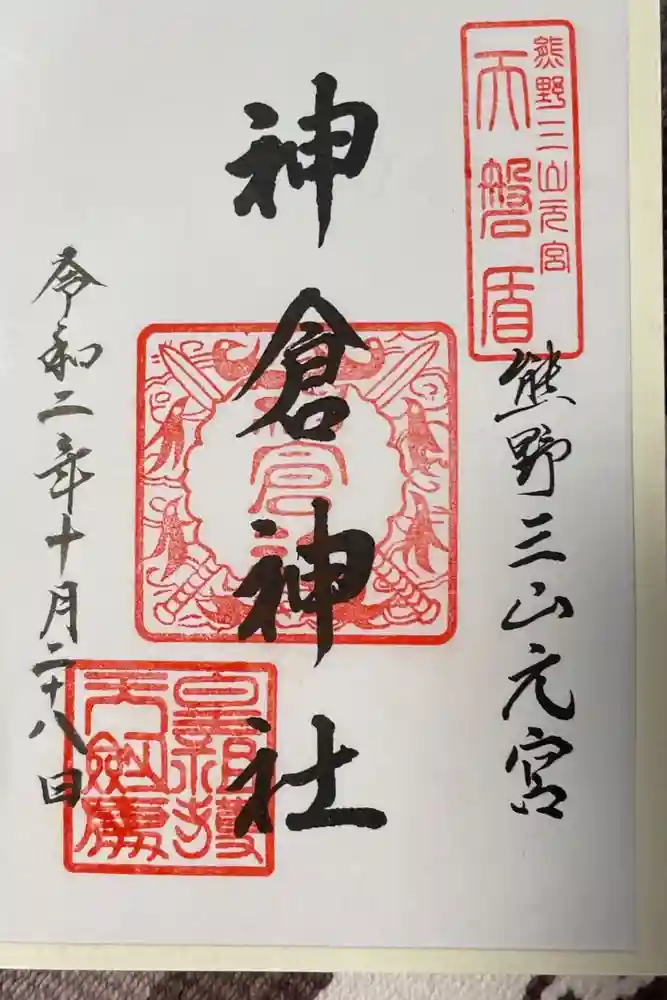 熊野三山元宮
天磐盾
熊野三山元宮
神倉神社
令和二年十月二十八日
皇祖授
天劔處